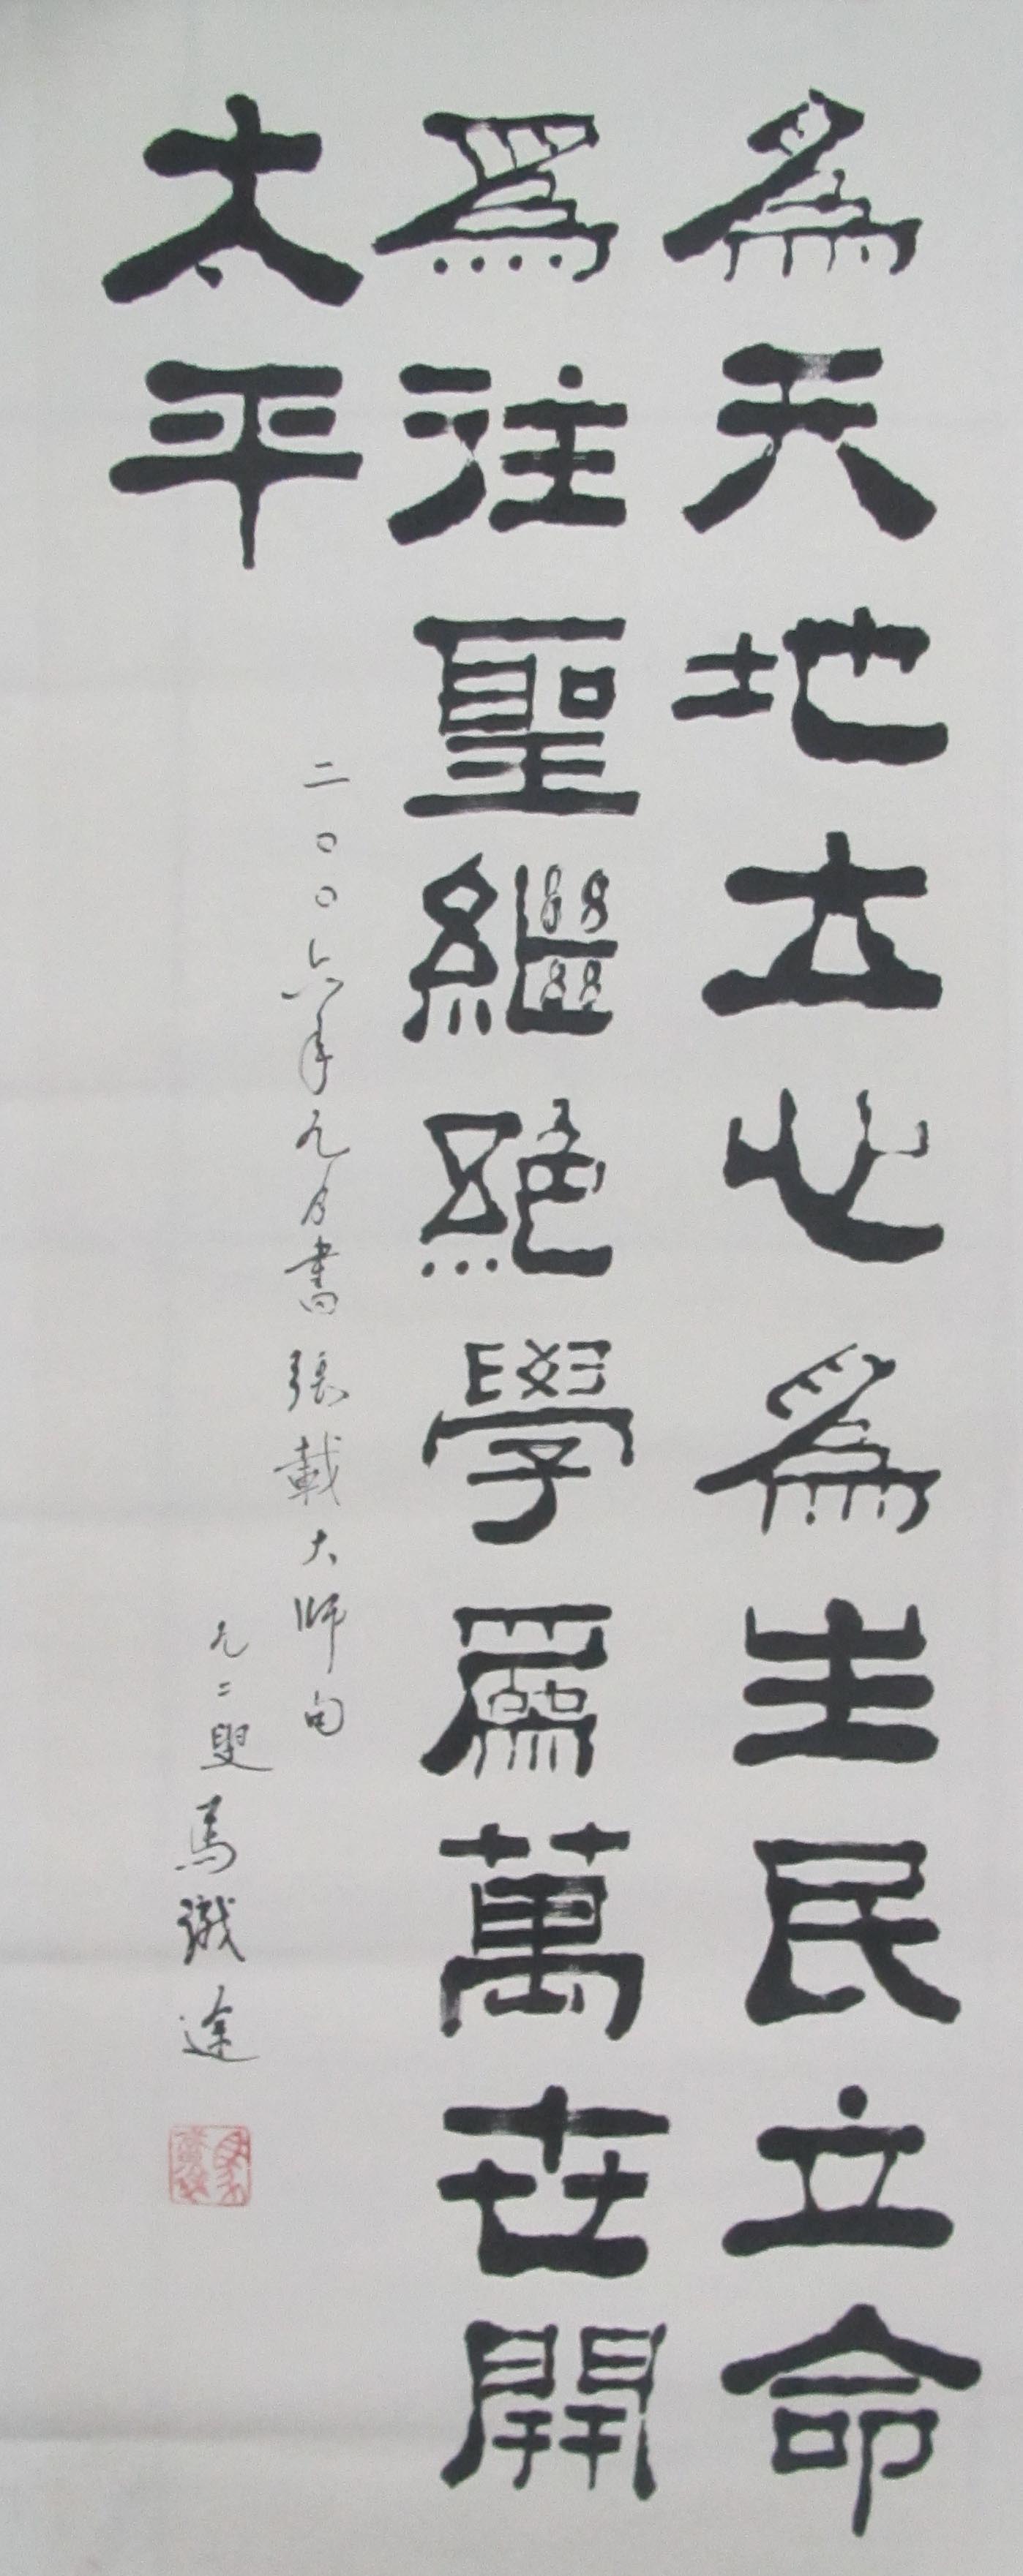 為天地立心為生民立命
為往聖繼絕學為萬世開
太平
二〇〇六年九月書張載大師句
九二叟馬識途